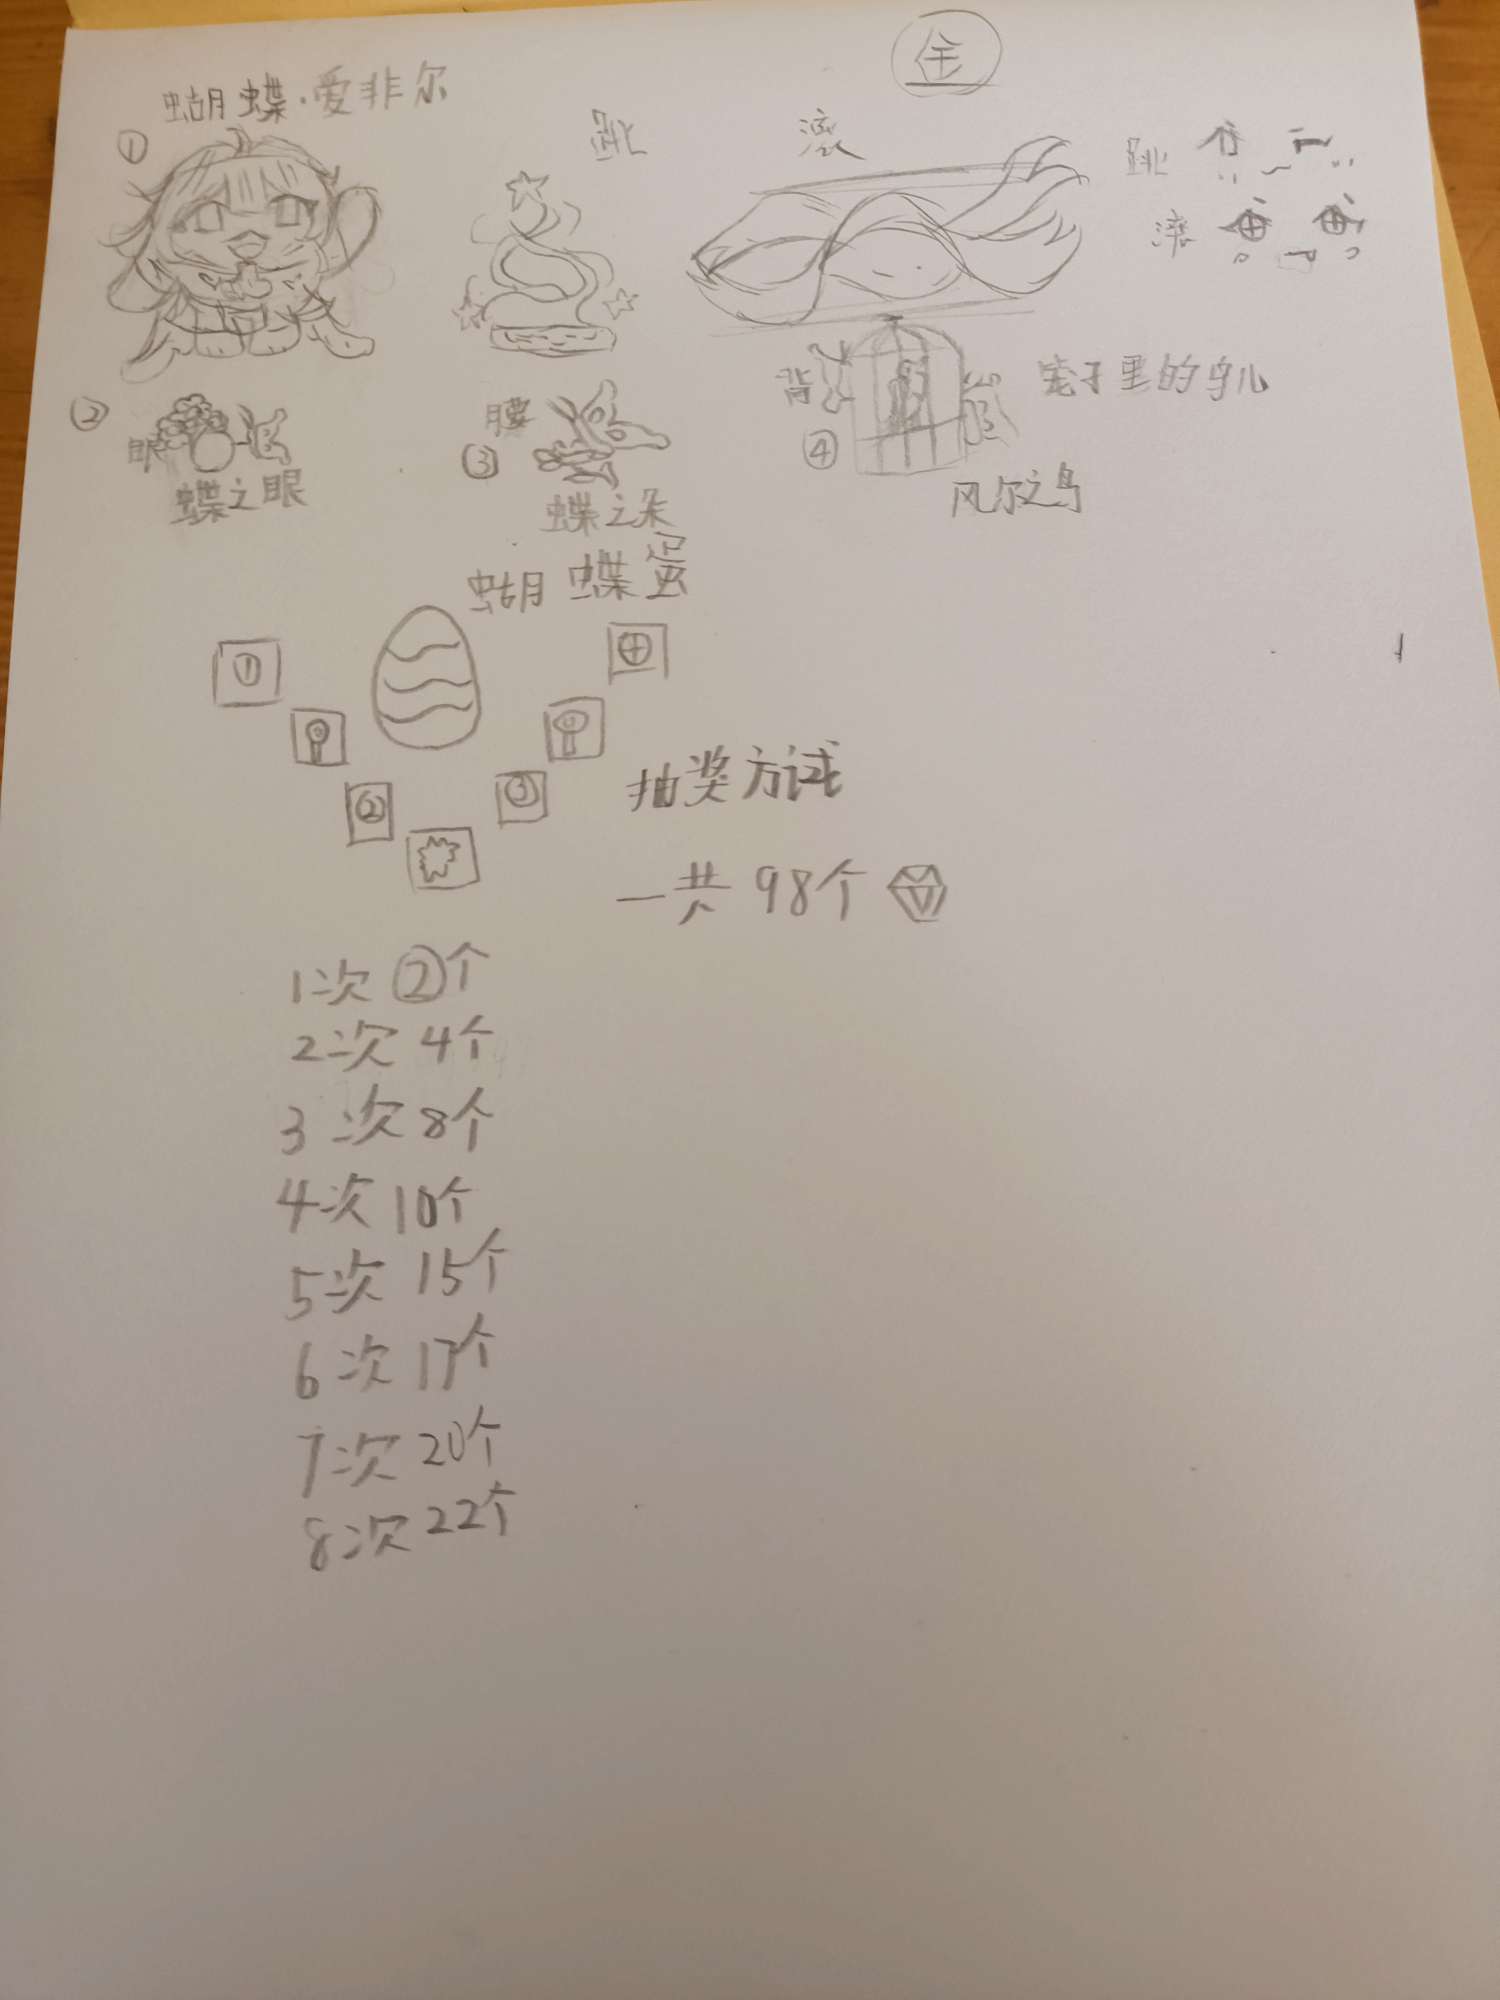 金
蝴蝶·爱非尔
① 跳 滚
跳
滚
背 笼子里的鸟儿
② 眼 腰 ③ ④
蝶之眼 蝶之朵 风尔之鸟
蝴蝶蛋
① ④
② ③
抽奖方试
一共98个
1次②个
2次4个
3次8个
4次10个
5次15个
6次17个
7次20个
8次22个